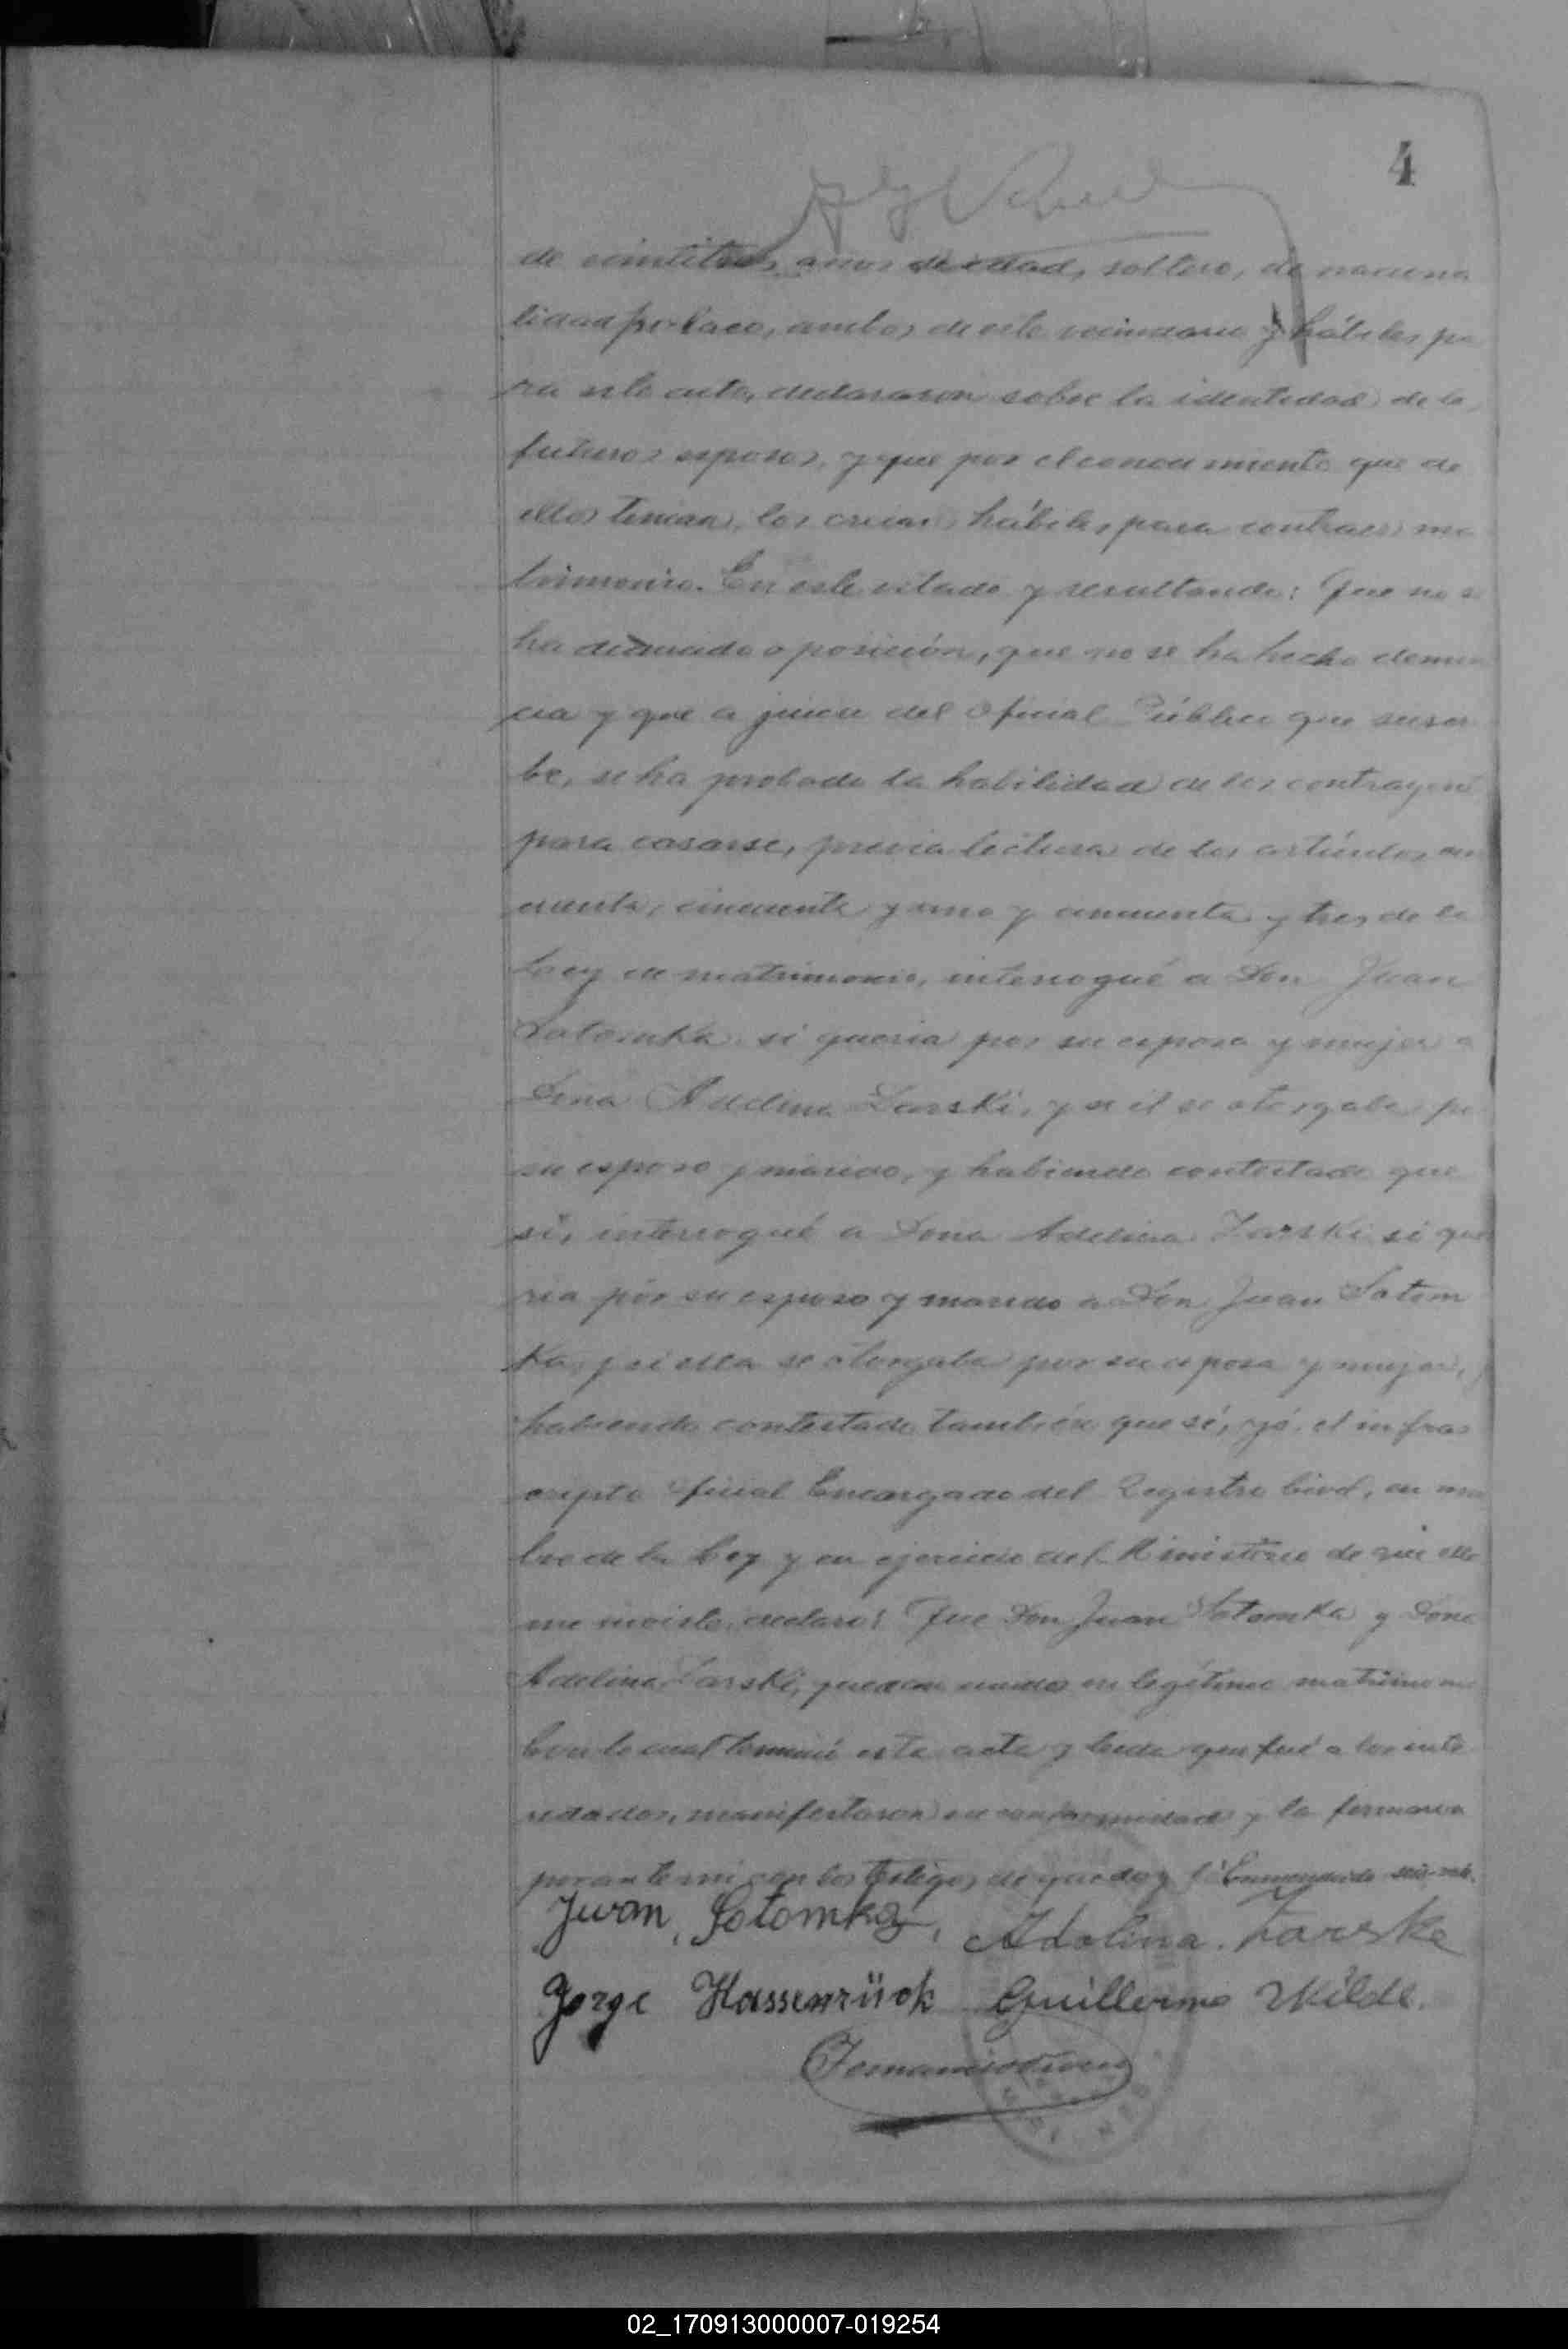 4
de veintitres años de edad, soltero, de naciona
lidad polaco, ambos de este vecindario y hábiles pa
ra este acto, declararon sobre la identidad de lo
futuros esposos, y que por el conocimiento que de
ellos tenian, los creian hábiles para contraer ma
trimonio. En este estado y resultando: Que no s
ha deducido oposición, que no se ha hecho denun
cia y que a juicio del Oficial Público que suscr
be, se ha probado la habilidad de los contrayent
para casarse, previa lectura de los artículos cin
cuenta, cincuenta y uno y cincuenta y tres de la
Ley de matrimonio, interrogué a Don Juan
Sotomka si queria por su esposa y mujer a
Dona Adelina Zarski, y si él se otorgaba po
su esposo y marido, y habiendo contestado que
si, interrogué a Dona Adelina Zarski si que
ria por su esposo y marido a Don Juan Sotom
ka, y si ella se otorgaba por su esposa y mujer, y
habiendo contestado también que sí, yó, el infras
cripto Oficial Encargado del Registro Civil, en nom
bre de la Ley y en ejercicio del Ministerio de que ella
me inviste, declaro: Que Don Juan Sotomka y Dona
Adelina Zarski, quedan unidos en legítimo matrimonio
Con lo cual terminó esta acta y leida que fué a los inte
resados, manifestaron su conformidad y la firmaron
por ante mi con los testigos de que doy fé Enmendado
Juan, Sotomka, Adolina. Zarske
Jorge Hassenrück Guillermo Wilde.
02_170913000007-019254